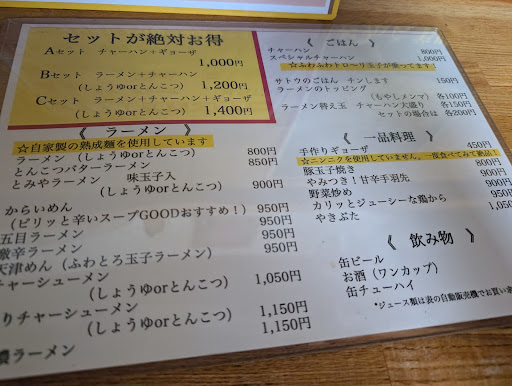 セットが絶対お得
Aセット チャーハン+ギョーザ
1,000円
Bセット ラーメン+チャーハン
(しょうゆorとんこつ) 1,200円
Cセット ラーメン+チャーハン+ギョーザ
(しょうゆorとんこつ) 1,400円
《 ラーメン 》
☆自家製の熟成麺を使用しています
ラーメン (しょうゆorとんこつ) 800円
とんこつバターラーメン 850円
とみやラーメン 味玉子入
(しょうゆorとんこつ) 900円
からいめん 950円
(ピリッと辛いスープGOODおすすめ!) 950円
五目ラーメン 950円
激辛ラーメン 950円
天津めん (ふわとろ玉子ラーメン)
チャーシューメン 1,050円
(しょうゆorとんこつ)
りチャーシューメン 1,150円
(しょうゆorとんこつ) 1,150円
ラーメン
《 ごはん 》
チャーハン 800円
スペシャルチャーハン 1,000円
☆ふわふわトローリ玉子が乗ってます!
サトウのごはん チンします 150円
ラーメンのトッピング
(もやしメンマ) 各100円
ラーメン替え玉 チャーハン大盛り 各150円
セットの場合は 各200円
《 一品料理 》
手作りギョーザ 450円
☆ニンニクを使用していません。一度食べてみて絶品!
豚玉子焼き 800円
やみつき!甘辛手羽先 900円
野菜炒め 900円
カリッとジューシーな鶏から 950円
やきぶた 1,05
《 飲み物 》
缶ビール
お酒(ワンカップ)
缶チューハイ
*ジュース類は表の自動販売機でお買い